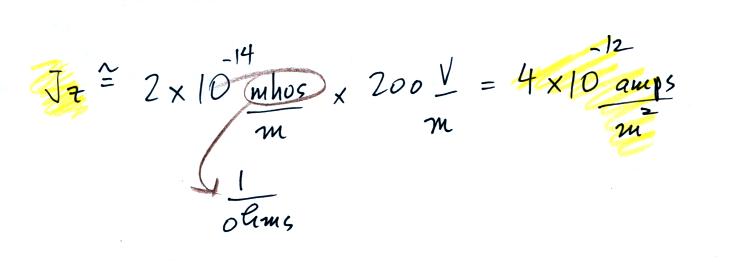 Jz ≅ 2 x 10^-14 mhos/m x 200 V/m = 4 x 10^-12 amps/m^2
1/ohms